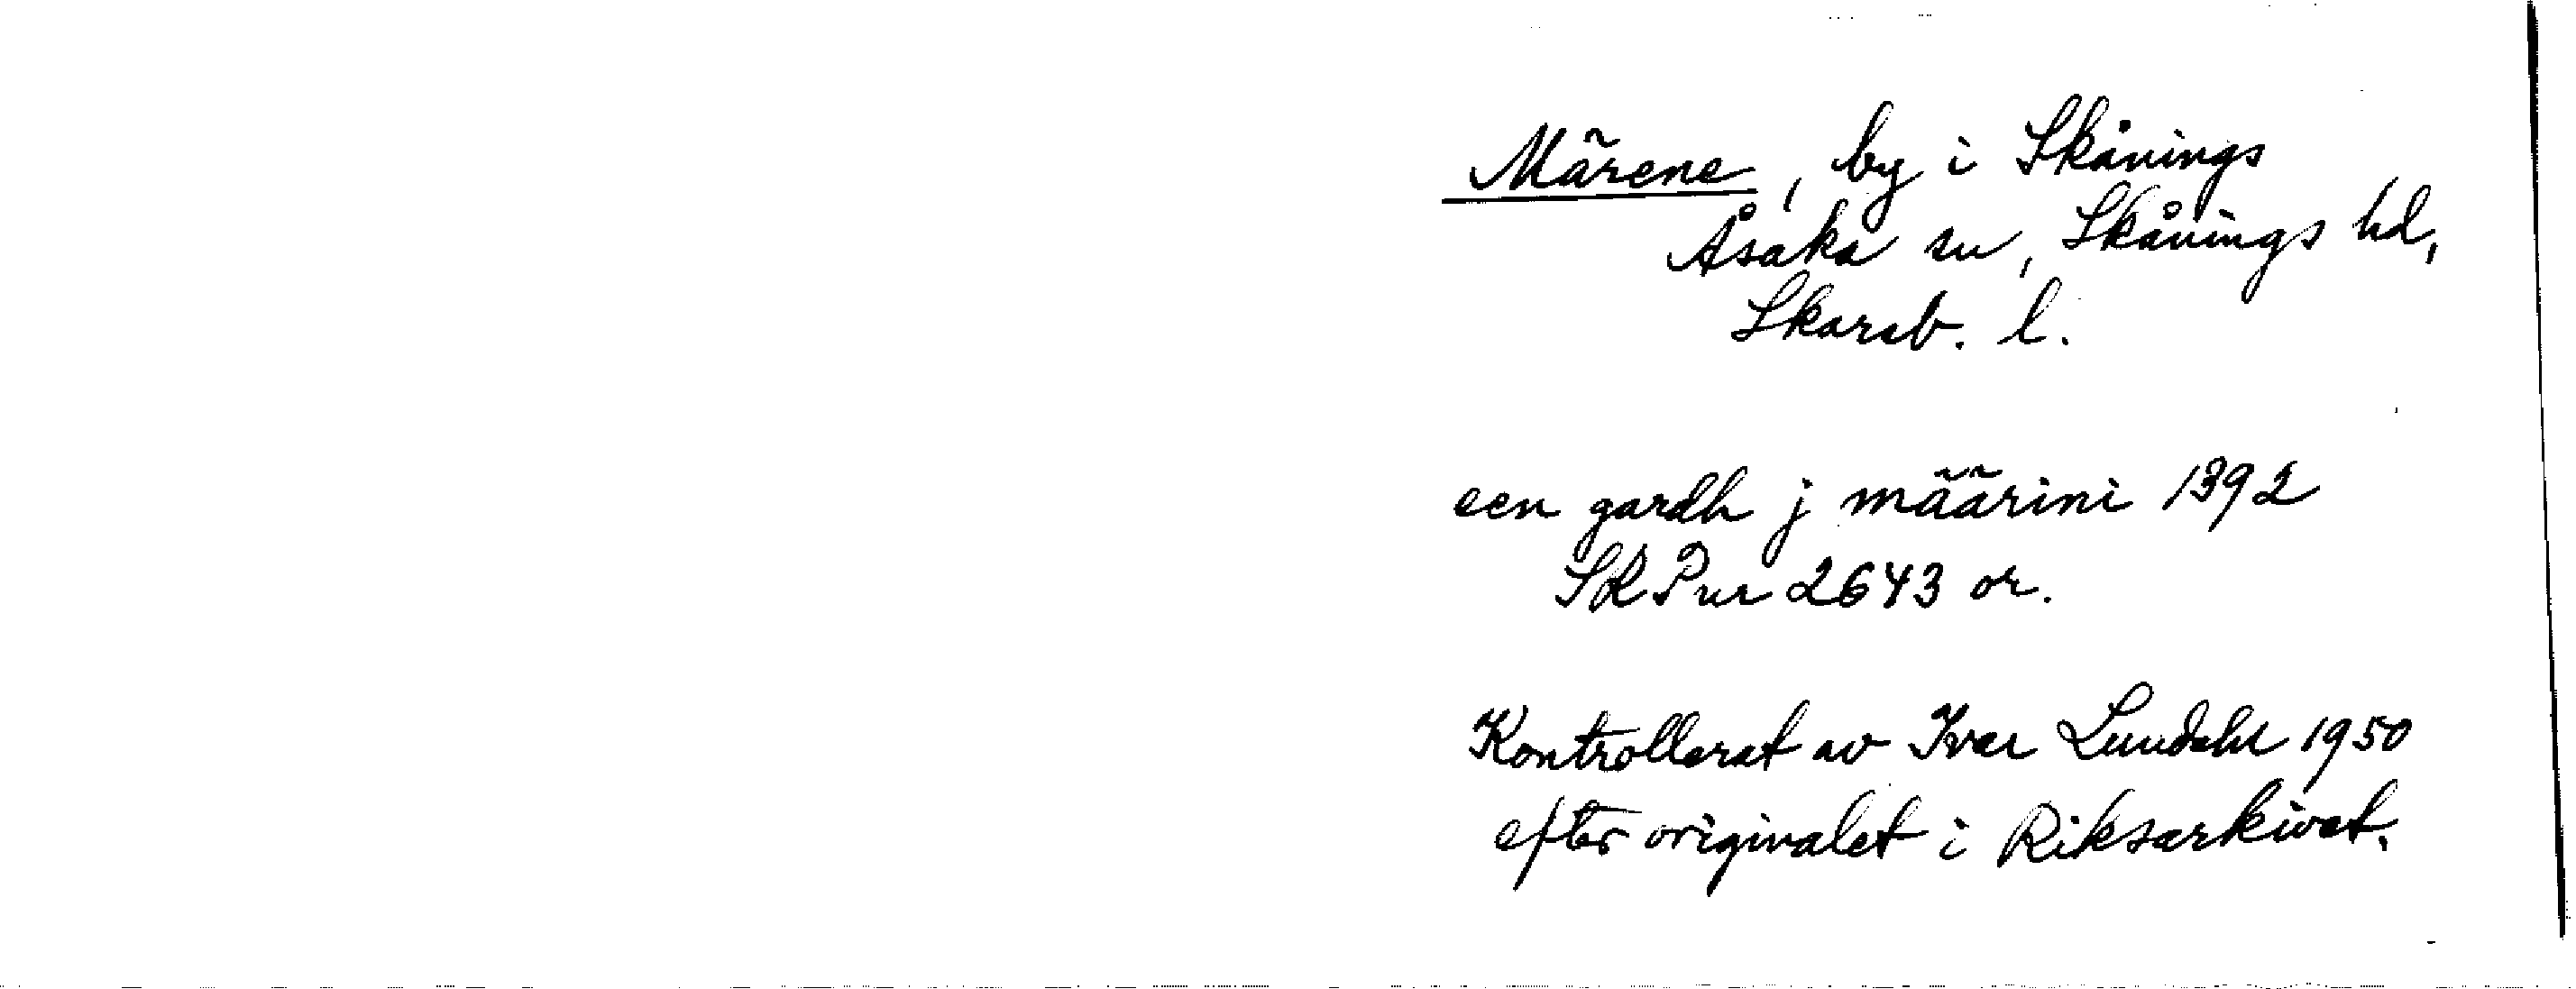 Märene, by i Skånings
Åsaka sn, Skånings hd,
Skarab. l.
een gardh j määrini 1392
SRPnr 2643 or.
Kontrollerat av Ivar Lundahl 1950
efter originalet i Riksarkivet.